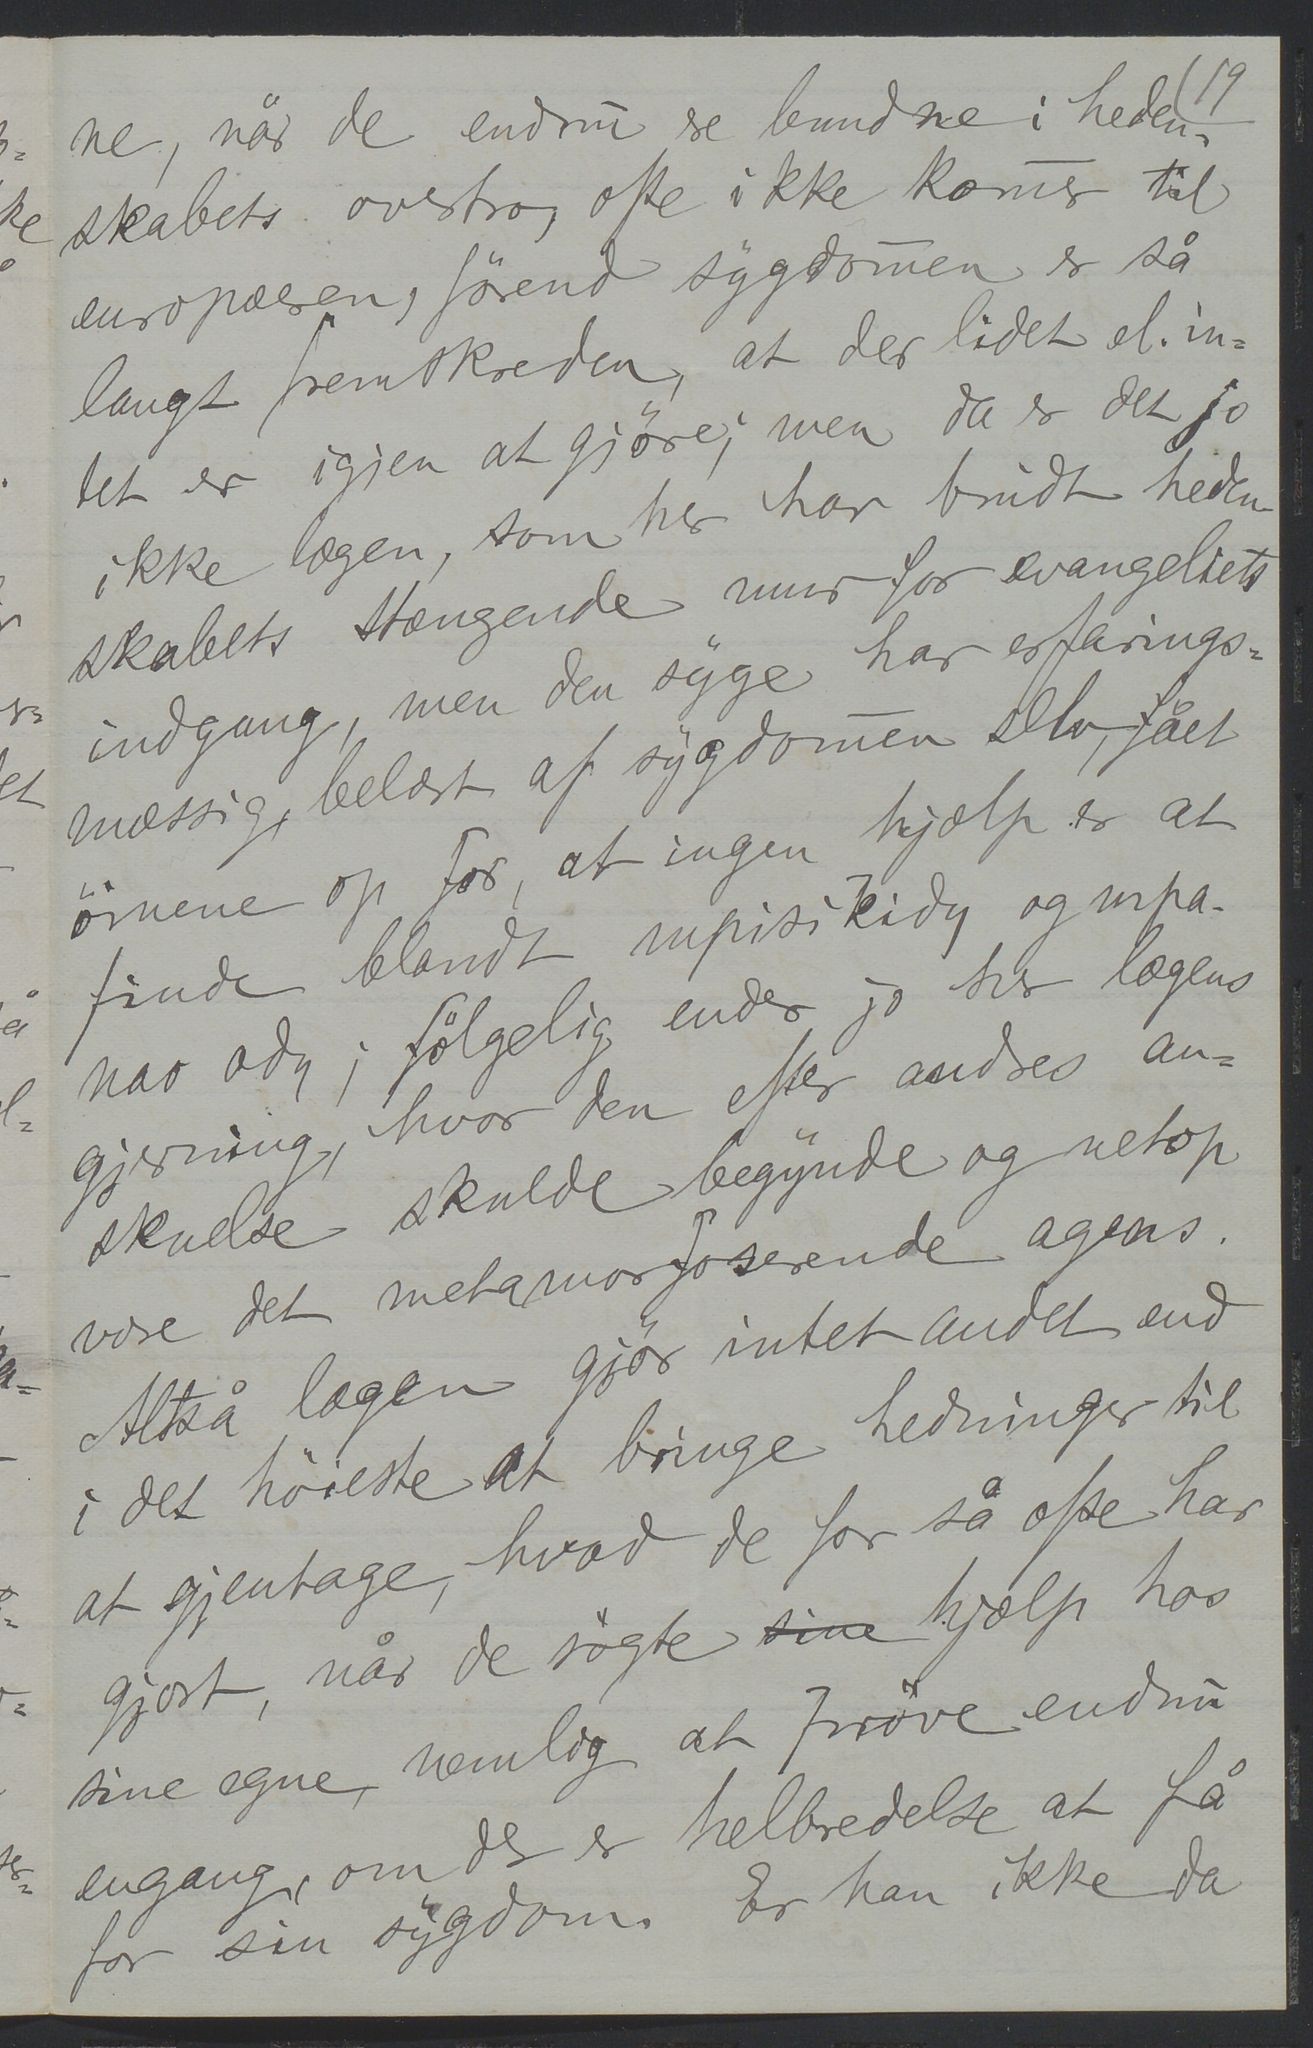 (19
ne, når de endnu ere bundne i heden-
skabets overtro, ofte ikke kom̄er til
europæeren, förend sygdom̄en er så
langt fremskreden, at der lidet el. in=
tet er igjen at gjöre; men da er det jo
ikke lægen, som her har brudt heden-
skabets stængende mur for evangeliets
indgang, men den syge har erfarings=
mæssig, belært af sygdom̄en selv, fået
öinene op for, at ingen hjælp er at
finde blandt mpisikidy og mpa-
nao ody; fölgelig ender jo her lægens
gjerning, hvor den efter andres an=
skuelse skulde begynde og netop
være det metamorfoserende agens.
Altså lægen gjör intet andet end
i det höieste at bringe hedninger til
at gjentage, hvad de för så ofte har
gjort, når de sögte sine hjælp hos
sine egne, nemlig at pröve endnu
engang, om der er helbredelse at få
for sin sygdom. Er han ikke da